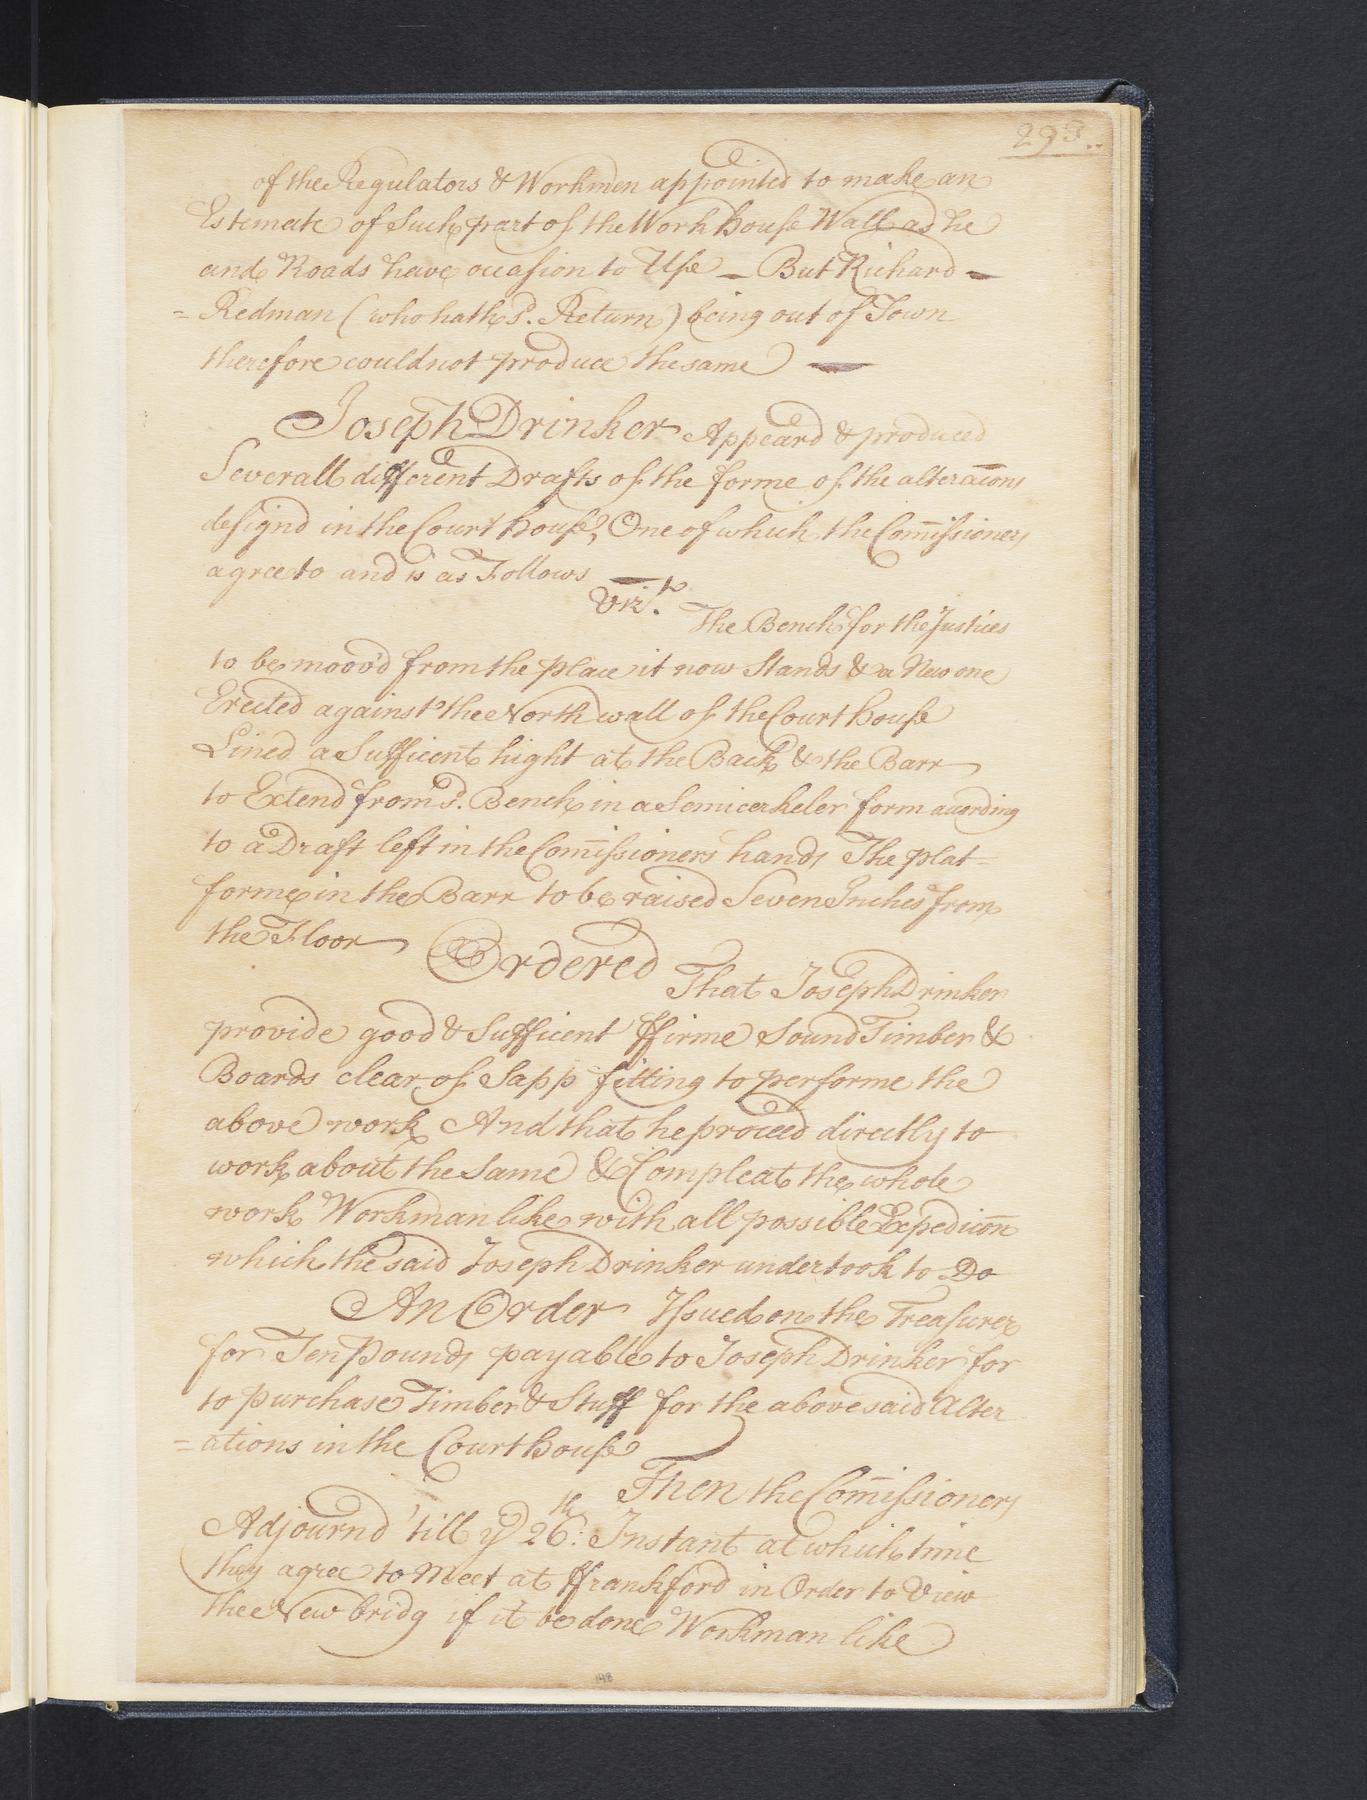 293..
of the Regulators & Workmen appointed to make an
Estimate of Such part of the Work house Wall as he
and Roads have occasion to Use — But Richard —
= Redman (who hath sd. Return) being out of Town
therefore could not produce the same —
Joseph Drinker Appeard & produced
Severall different Drafts of the forme of the alteracions
designd in the Court house, One of which the Comissioners
agree to and is as Follows
Vizt.
The Bench for the Justices
to be moov'd from the place it now Stands & a New one
Erected against the North wall of the Court house
Lined a Sufficent hight at the Back & the Barr
to Extend from sd. Bench in a Semicerkeler form acording
to a Draft left in the Comissioners hands The plat=
forme in the Barr to be raised Seven Inches from
the Floor
Ordered That Joseph Drinker
provide good & Sufficent ffirme Sound Timber &
Boards clear of Sapp fitting to performe the
above work And that he proceed directly to
work about the Same & Compleat the whole
work Workman like with all possible Expedicon
which the said Joseph Drinker undertook to Do
An Order Issued on the Treasurer
for Ten Pounds payable to Joseph Drinker for
to purchase Timber & Stuff for the above said Alter
=ations in the Court house
Then the Comissioners
Adjournd 'till ye 26th: Instant at which time
they agree to Meet at ffrankford in Order to View
the New bridg if it be done Workman like
148